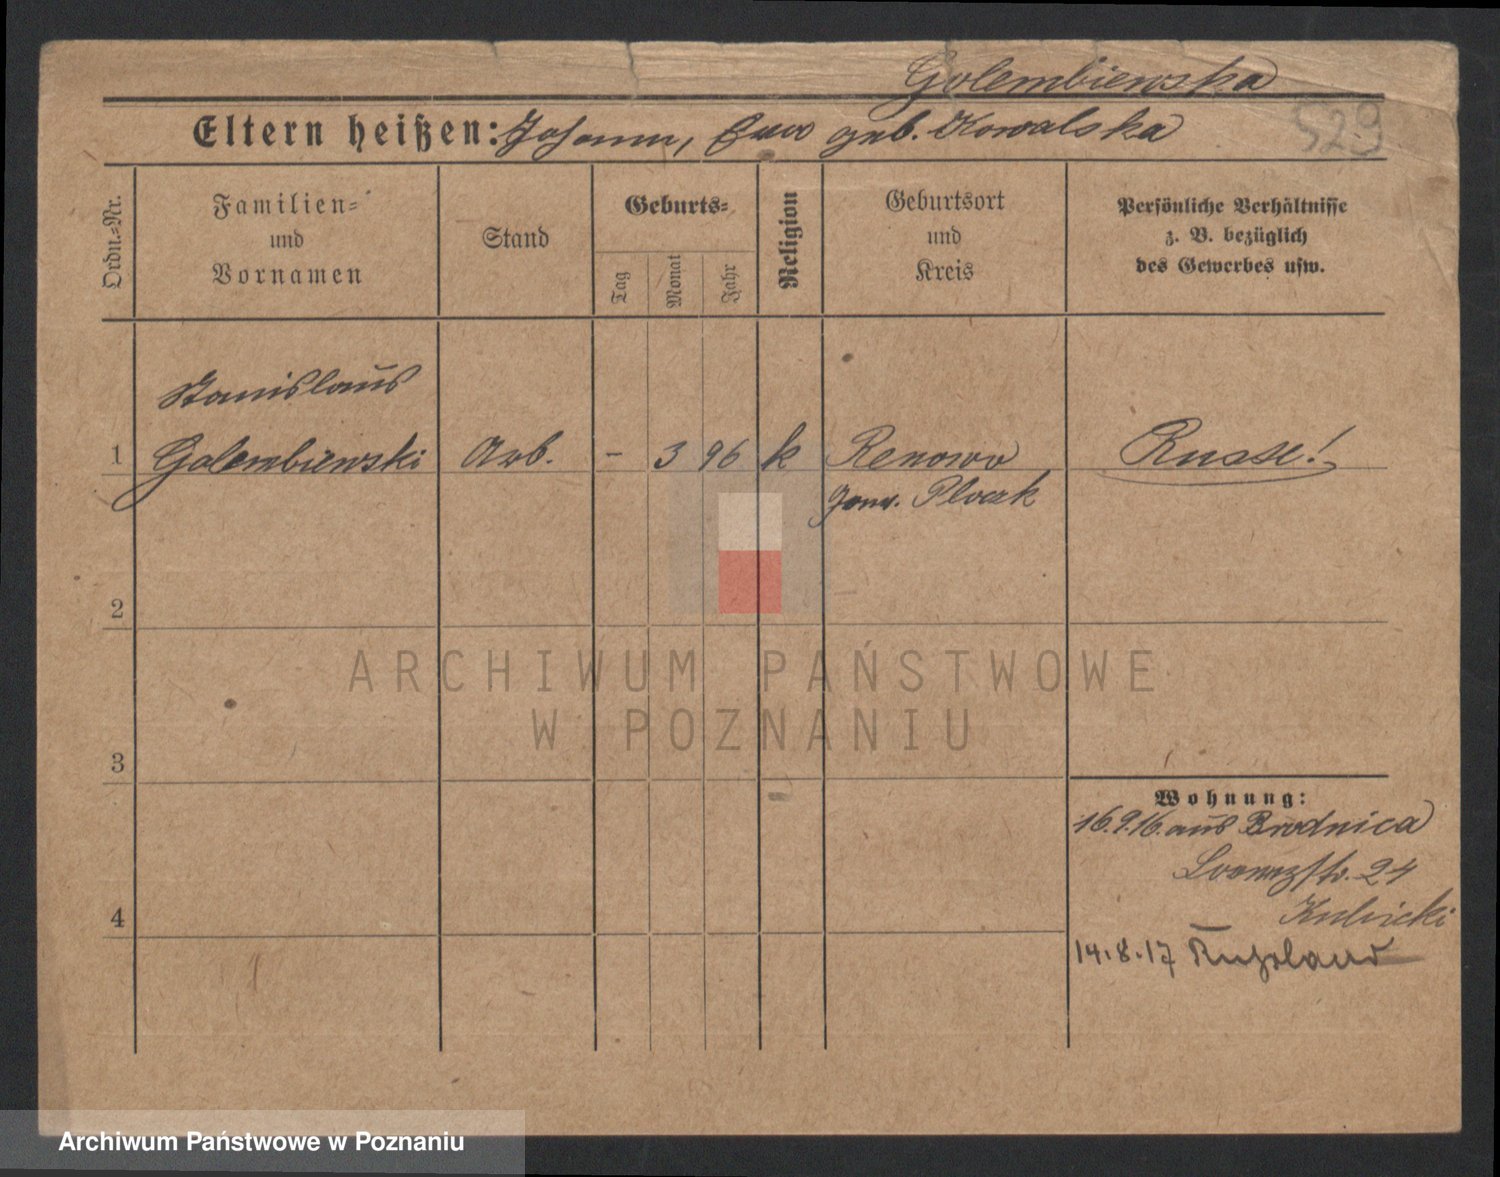 Golembiewska
529
Eltern heißen: Johann, Eva geb. Kowalska
Ordn.=Nr.
Familien=
und
Vornamen
Stand
Geburts=
Tag
Monat
Jahr
Religion
Geburtsort
und
Kreis
Persönliche Verhältnisse
z. B. bezüglich
des Gewerbes usw.
Stanislaus
1 Golembiewski Arb. - 3 96 k Renowo Russe!
Gouv. Plozk
2
ARCHIWUM PAŃSTWOWE
W POZNANIU
3
Wohnung:
16.9.16. aus Brodnica
24
Kubicki
4
14.8.17 Russland
Archiwum Państwowe w Poznaniu